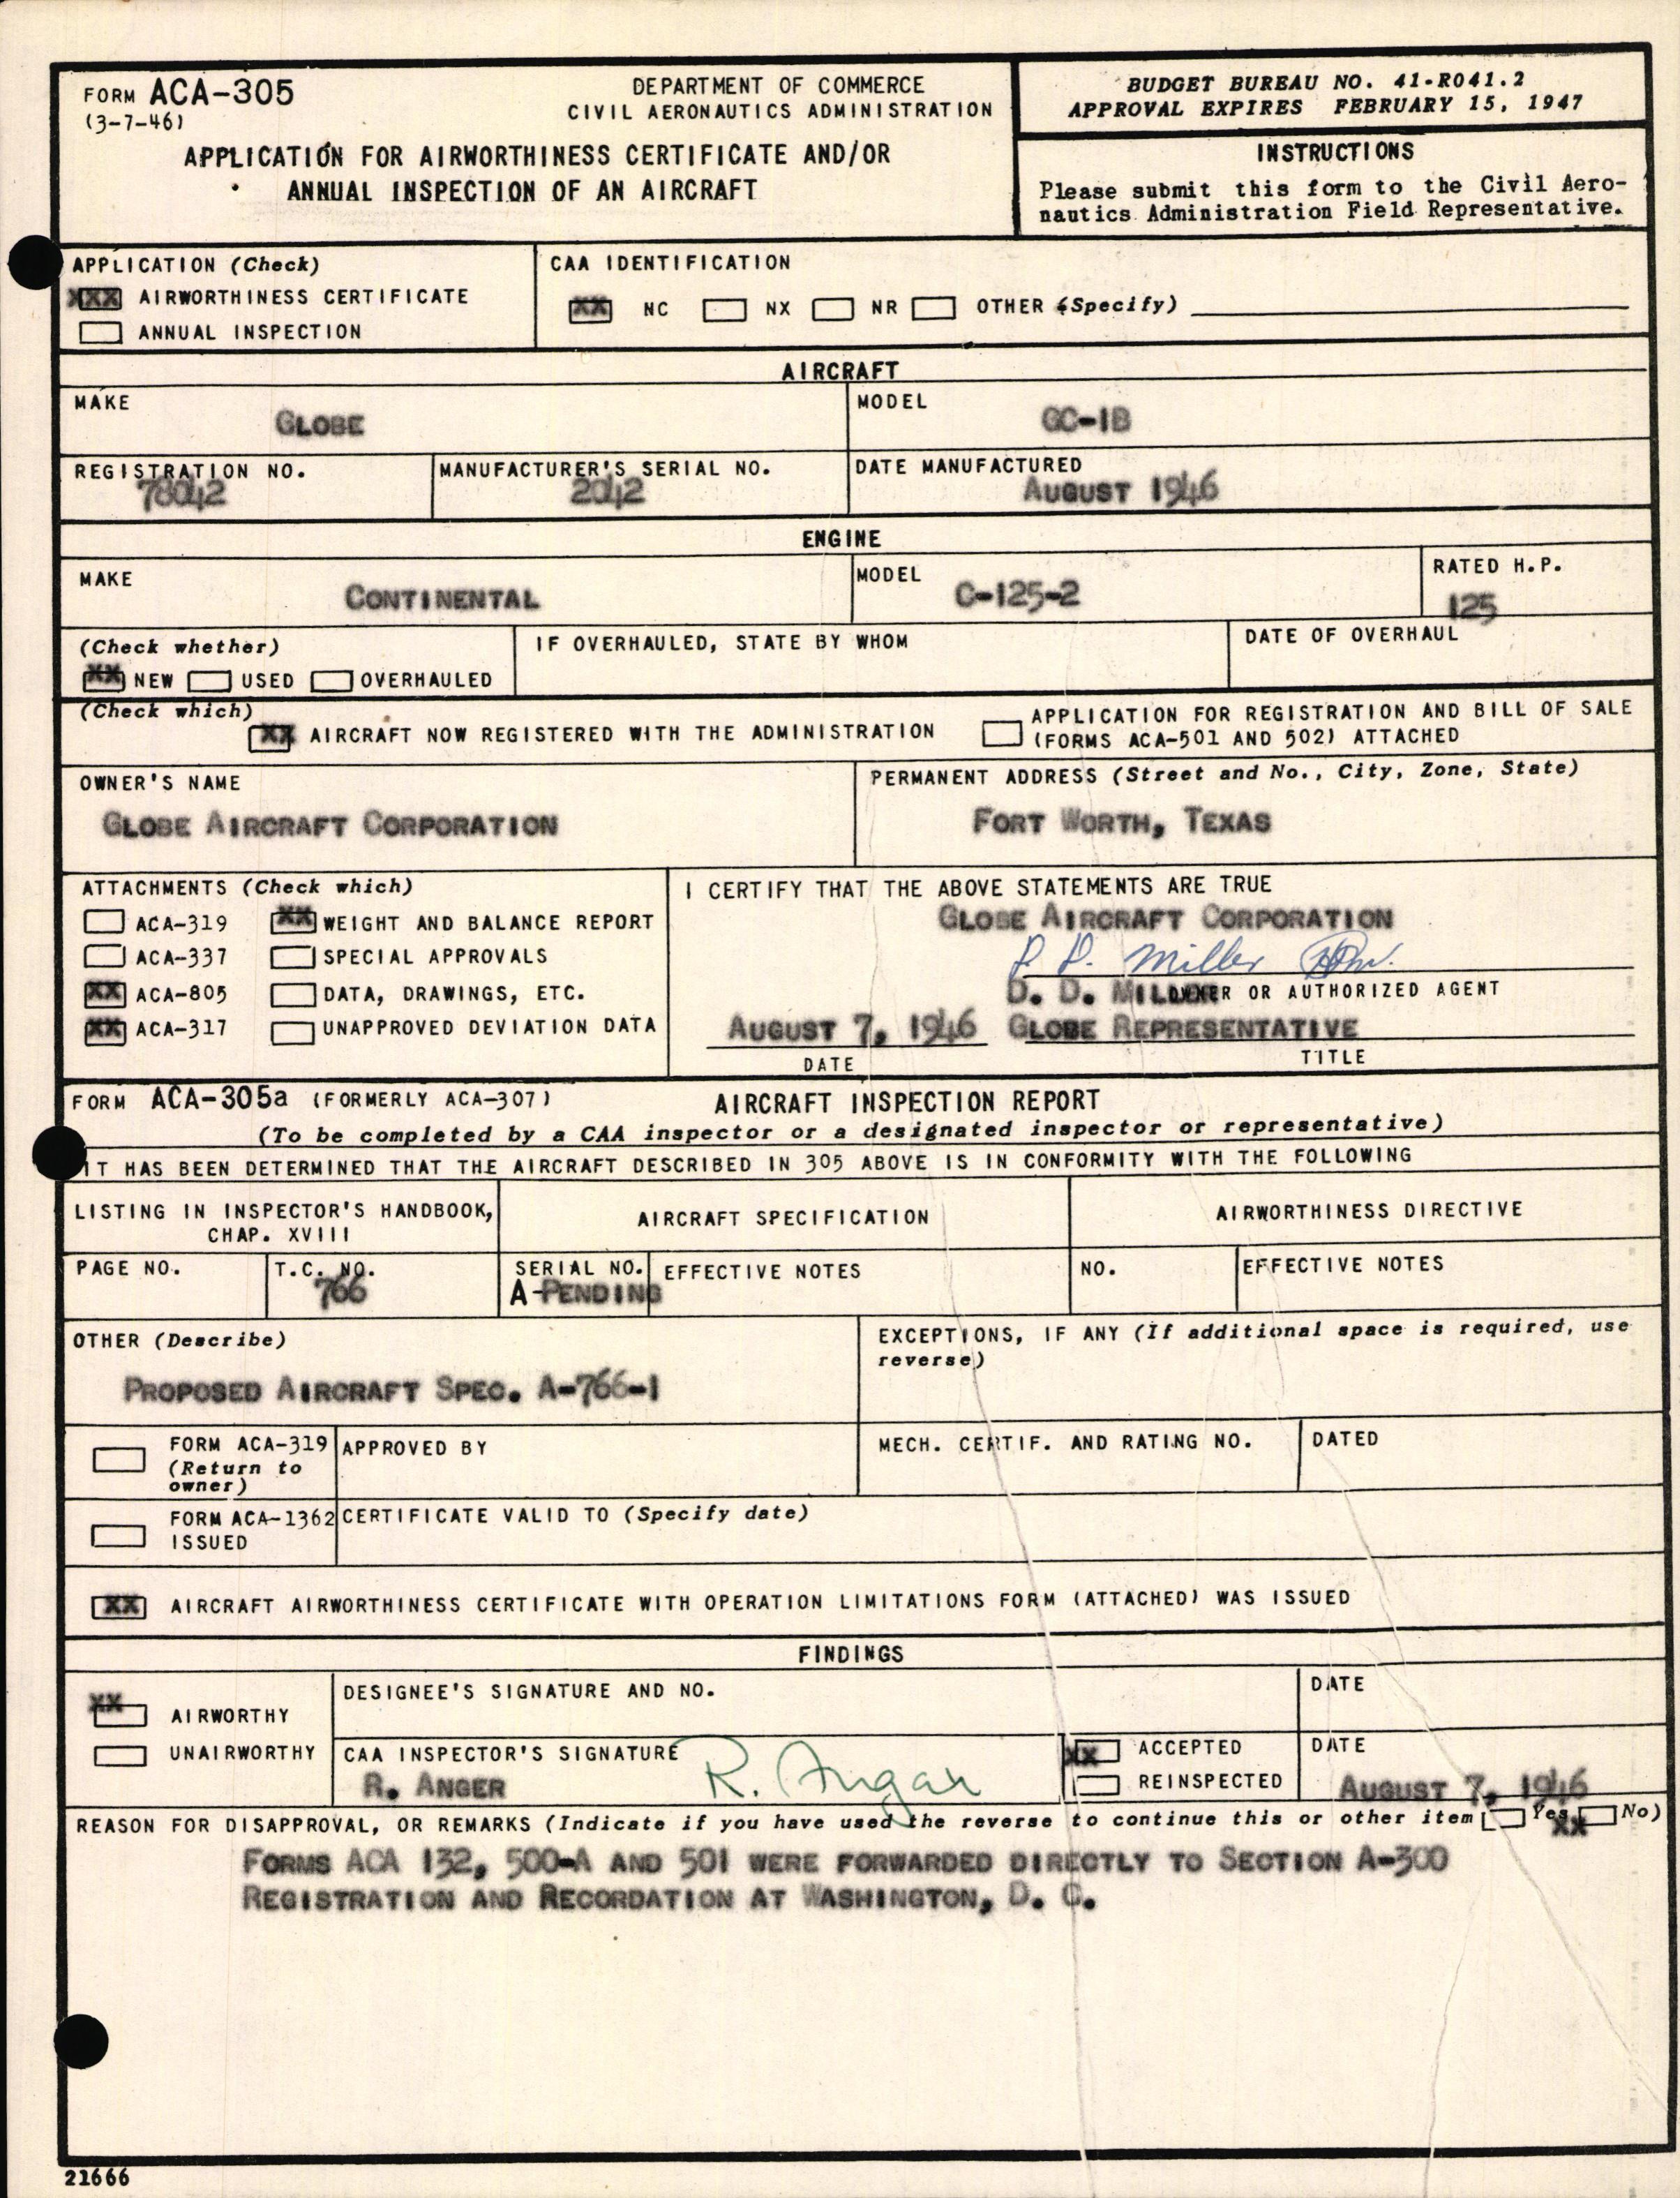 FORM ACA-305
(3-7-46)
DEPARTMENT OF COMMERCE
CIVIL AERONAUTICS ADMINISTRATION
APPLICATION FOR AIRWORTHINESS CERTIFICATE AND/OR
ANNUAL INSPECTION OF AN AIRCRAFT
BUDGET BUREAU NO. 41-R041.2
APPROVAL EXPIRES FEBRUARY 15, 1947
INSTRUCTIONS
Please submit this form to the Civil Aero-
nautics Administration Field Representative.
APPLICATION (Check)
XXX AIRWORTHINESS CERTIFICATE
ANNUAL INSPECTION
CAA IDENTIFICATION
XX NC NX NR OTHER (Specify)
AIRCRAFT
MAKE
GLOBE
MODEL
GC-1B
REGISTRATION NO.
78042
MANUFACTURER'S SERIAL NO.
2042
DATE MANUFACTURED
AUGUST 1946
ENGINE
MAKE
CONTINENTAL
MODEL
C-125-2
RATED H.P.
125
(Check whether)
XX NEW USED OVERHAULED
IF OVERHAULED, STATE BY WHOM
DATE OF OVERHAUL
(Check which)
XX AIRCRAFT NOW REGISTERED WITH THE ADMINISTRATION
APPLICATION FOR REGISTRATION AND BILL OF SALE
(FORMS ACA-501 AND 502) ATTACHED
OWNER'S NAME
GLOBE AIRCRAFT CORPORATION
PERMANENT ADDRESS (Street and No., City, Zone, State)
FORT WORTH, TEXAS
ATTACHMENTS (Check which)
ACA-319 XX WEIGHT AND BALANCE REPORT
ACA-337 SPECIAL APPROVALS
XX ACA-805 DATA, DRAWINGS, ETC.
XX ACA-317 UNAPPROVED DEVIATION DATA
I CERTIFY THAT THE ABOVE STATEMENTS ARE TRUE
GLOBE AIRCRAFT CORPORATION
D. D. Miller
D. D. MILLER OWNER OR AUTHORIZED AGENT
AUGUST 7, 1946 GLOBE REPRESENTATIVE
DATE TITLE
FORM ACA-305a (FORMERLY ACA-307) AIRCRAFT INSPECTION REPORT
(To be completed by a CAA inspector or a designated inspector or representative)
IT HAS BEEN DETERMINED THAT THE AIRCRAFT DESCRIBED IN 305 ABOVE IS IN CONFORMITY WITH THE FOLLOWING
LISTING IN INSPECTOR'S HANDBOOK,
CHAP. XVIII
AIRCRAFT SPECIFICATION
AIRWORTHINESS DIRECTIVE
PAGE NO.
T.C. NO.
766
SERIAL NO.
A-PENDING
EFFECTIVE NOTES
NO.
EFFECTIVE NOTES
OTHER (Describe)
PROPOSED AIRCRAFT SPEC. A-766-1
EXCEPTIONS, IF ANY (If additional space is required, use
reverse)
FORM ACA-319
(Return to
owner)
APPROVED BY
MECH. CERTIF. AND RATING NO.
DATED
FORM ACA-1362
ISSUED
CERTIFICATE VALID TO (Specify date)
XX AIRCRAFT AIRWORTHINESS CERTIFICATE WITH OPERATION LIMITATIONS FORM (ATTACHED) WAS ISSUED
FINDINGS
XX AIRWORTHY
UNAIRWORTHY
DESIGNEE'S SIGNATURE AND NO.
DATE
CAA INSPECTOR'S SIGNATURE
R. ANGER
R. Anger
XX ACCEPTED
REINSPECTED
DATE
AUGUST 7, 1946
REASON FOR DISAPPROVAL, OR REMARKS (Indicate if you have used the reverse to continue this or other item Yes XX No)
FORMS ACA 132, 500-A AND 501 WERE FORWARDED DIRECTLY TO SECTION A-300
REGISTRATION AND RECORDATION AT WASHINGTON, D. C.
21666